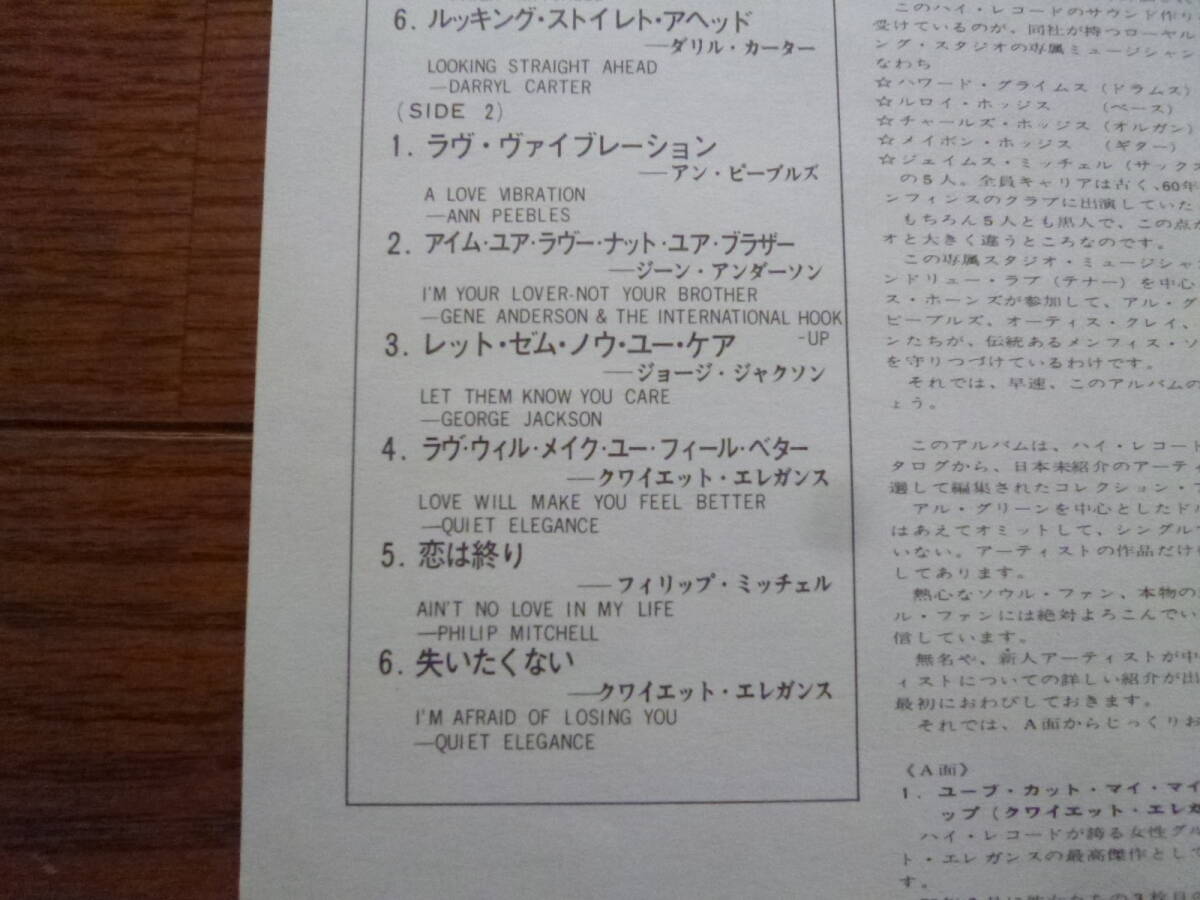 6. ルッキング・ストイレト・アヘッド
—ダリル・カーター
LOOKING STRAIGHT AHEAD
—DARRYL CARTER
(SIDE 2)
1. ラヴ・ヴァイブレーション
—アン・ピーブルズ
A LOVE VIBRATION
—ANN PEEBLES
2. アイム・ユア・ラヴー・ナット・ユア・ブラザー
—ジーン・アンダーソン
I'M YOUR LOVER-NOT YOUR BROTHER
—GENE ANDERSON & THE INTERNATIONAL HOOK
-UP
3. レット・ゼム・ノウ・ユー・ケア
—ジョージ・ジャクソン
LET THEM KNOW YOU CARE
—GEORGE JACKSON
4. ラヴ・ウィル・メイク・ユー・フィール・ベター
—クワイエット・エレガンス
LOVE WILL MAKE YOU FEEL BETTER
—QUIET ELEGANCE
5. 恋は終り
—フィリップ・ミッチェル
AIN'T NO LOVE IN MY LIFE
—PHILIP MITCHELL
6. 失いたくない
—クワイエット・エレガンス
I'M AFRAID OF LOSING YOU
—QUIET ELEGANCE
このハイ・レコードのサウンド作り
受けているのが、同社が持つローヤル
ング・スタジオの専属ミュージシャン
なわち
☆ハワード・グライムス（ドラムス）
☆ルロイ・ホッジス （ベース）
☆チャールズ・ホッジス（オルガン）
☆メイボン・ホッジス （ギター）
☆ジェイムス・ミッチェル（サックス
の5人。全員キャリアは古く、60年
ンフィンスのクラブに出演していた
もちろん5人とも黒人で、この点が
オと大きく違うところなのです。
この専属スタジオ・ミュージシャ
ンドリュー・ラブ（テナー）を中心
ス・ホーンズが参加して、アル・グ
ピーブルズ、オーティス・クレイ、
ンたちが、伝統あるメンフィス・ソ
を守りつづけているわけです。
それでは、早速、このアルバムの
ょう。
このアルバムは、ハイ・レコード
タログから、日本未紹介のアーティ
選して編集されたコレクション・ア
アル・グリーンを中心としたドル
はあえてオミットして、シングル
いない。アーティストの作品だけ
してあります。
熱心なソウル・ファン、本物の
ル・ファンには絶対よろこんでい
信しています。
無名や、新人アーティストが中
ィストについての詳しい紹介が出
最初におわびしておきます。
それでは、A面からじっくりお
《A面》
1. ユーブ・カット・マイ・マイ
ップ（クワイエット・エレガ
ハイ・レコードが誇る女性グル
ト・エレガンスの最高傑作として
す。